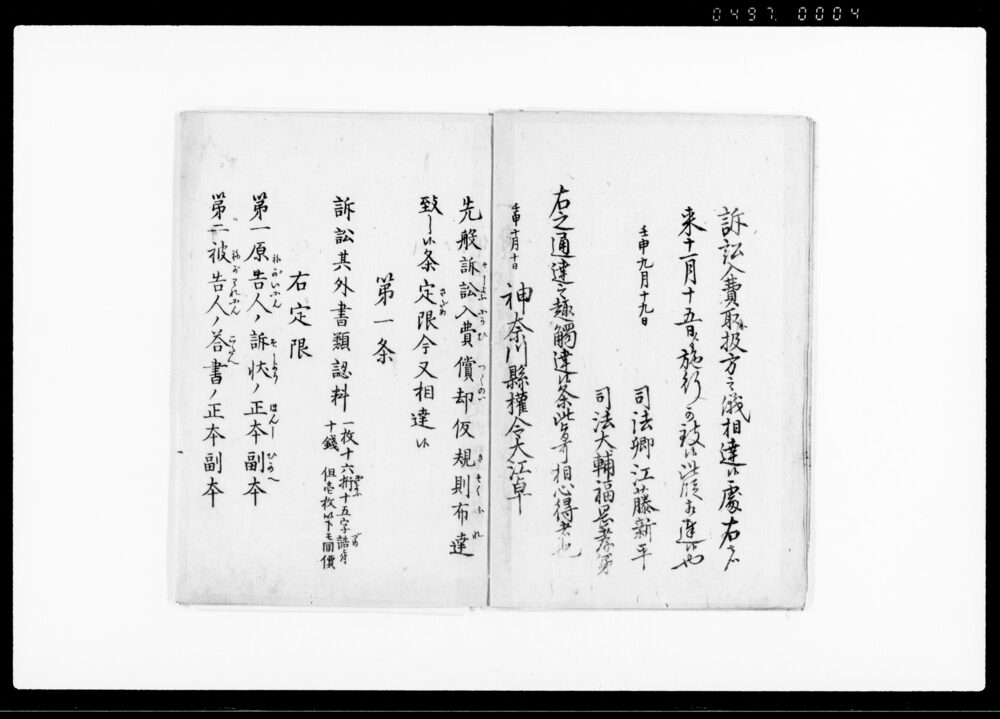 0497 0004
訴訟入費取扱方之儀相達候處右者
来十一月十五日ゟ施行可致候此段相達候也
壬申九月十九日
司法卿江藤新平
司法大輔福岡孝弟
右之通達之趣觸達候条此旨相心得者也
壬申十月十日
神奈川縣權令大江卓
先般訴訟入費償却仮規則布達
致し候条定限今又相達候
第一条
訴訟其外書類認料 一枚十六桁十五字詰
十錢 但壱枚以下モ同價
右定限
第一原告人ノ訴状ノ正本副本
第二被告人ノ答書ノ正本副本